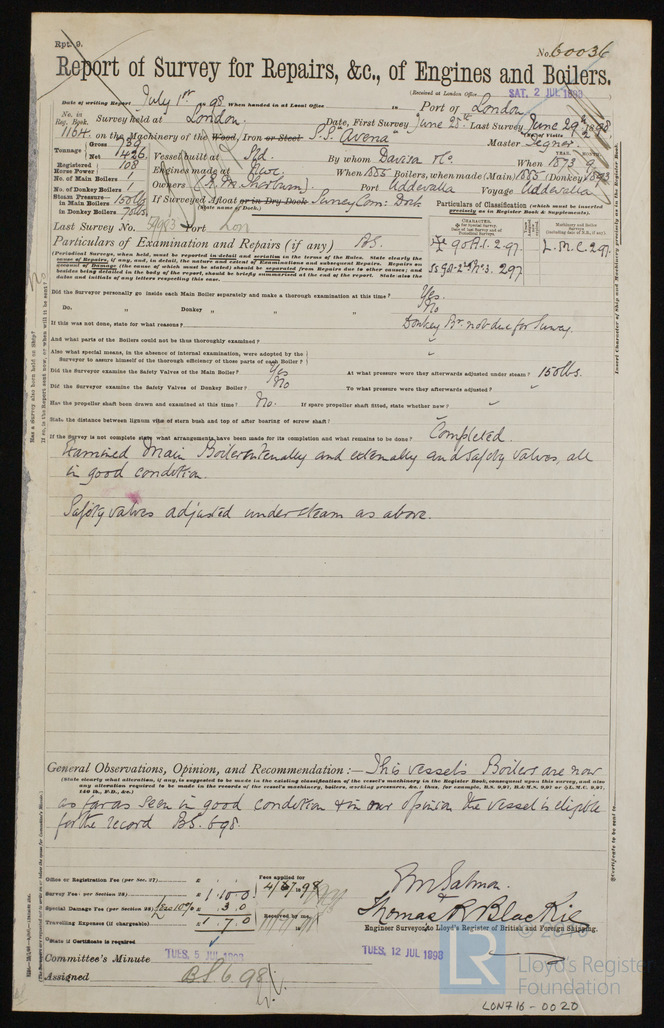 Rpt. 9.
No. 60036
Report of Survey for Repairs, &c., of Engines and Boilers.
(Received at London Office SAT. 2 JUL 1898
Date of writing Report July 1st 1898 When handed in at Local Office 18 Port of London
No. in Reg. Book. Survey held at London. Date, First Survey June 28th Last Survey June 29th 1898
1164 on the Machinery of the Wood, Iron or Steel S.S. "Avena" Master Tegner
Tonnage Gross 739
Net 426 Vessel built at Sld. By whom Davison & Co. When 1873
Registered Horse Power 108 Engines made at When 1885 Boilers, when made (Main) 1885 (Donkey) 1893
No. of Main Boilers 1
No. of Donkey Boilers 1 Owners Port Uddevalla Voyage Uddevalla
Steam Pressure in Main Boilers 150lbs If Surveyed Afloat or in Dry Dock Surrey Com: Dock
in Donkey Boilers 70lbs. (State name of Dock.)
Particulars of Classification (which must be inserted precisely as in Register Book & Supplements).
Last Survey No. Port Lon
Particulars of Examination and Repairs (if any) BS.
90A.1. 2.97. L.M.C. 2.97.
SS No.3. 2.97
(Periodical Surveys, when held, must be reported in detail and seriatim in the terms of the Rules. State clearly the
cause of Repairs, if any, and, in detail, the nature and extent of Examinations and subsequent Repairs. Repairs on
account of Damage (the cause of which must be stated) should be separated from Repairs due to other causes; and
besides being detailed in the body of the report, should be briefly summarised at the end of the report. State also the
dates and initials of any letters respecting this case.
Did the Surveyor personally go inside each Main Boiler separately and make a thorough examination at this time? Yes.
Do. " Donkey " " " " No
If this was not done, state for what reasons? Donkey Br. not due for Survey.
And what parts of the Boilers could not be thoroughly examined? "
Also what special means, in the absence of internal examination, were adopted by the
Surveyor to assure himself of the thorough efficiency of those parts of each Boiler? "
Did the Surveyor examine the Safety Valves of the Main Boiler? Yes At what pressure were they afterwards adjusted under steam? 150lbs.
Did the Surveyor examine the Safety Valves of Donkey Boiler? No To what pressure were they afterwards adjusted? "
Has the propeller shaft been drawn and examined at this time? No. If spare propeller shaft fitted, state whether new? "
State the distance between lignum vitæ of stern bush and top of after bearing of screw shaft? "
If the Survey is not complete state what arrangements have been made for its completion and what remains to be done? Completed.
Examined Main Boiler internally and externally and safety valves, all
in good condition.
Safety valves adjusted under steam as above.
General Observations, Opinion, and Recommendation:— This vessel's Boilers are now
(State clearly what alteration, if any, is suggested to be made in the existing classification of the vessel's machinery in the Register Book, consequent upon this survey, and also
any alteration required to be made in the records of the vessel's machinery, boilers, working pressures, &c.; thus, for example, B.S. 9,97, B.&M.S. 9,97 or L.M.C. 9,97,
140 lb., F.D., &c.)
as far as seen in good condition & in our opinion the vessel is eligible
for the record BS. 6.98.
Office or Registration Fee (per Sec. 27) £ : : Fees applied for
Survey Fee (per Section 28) £ 1 : 10 : 0
Special Damage Fee (per Section 28) less 10% £ : 3 : 0 Received by me,
Travelling Expenses (if chargeable) £ 1 : 7 : 0
State if Certificate is required
Committee's Minute TUES. 5 JUL 1898 TUES. 12 JUL 1898
Assigned BS. 6.98
E M Salmon.
Thomas R Blackie
Engineer Surveyor to Lloyd's Register of British and Foreign Shipping.
LR
Lloyd's Register
Foundation
LON716-0020